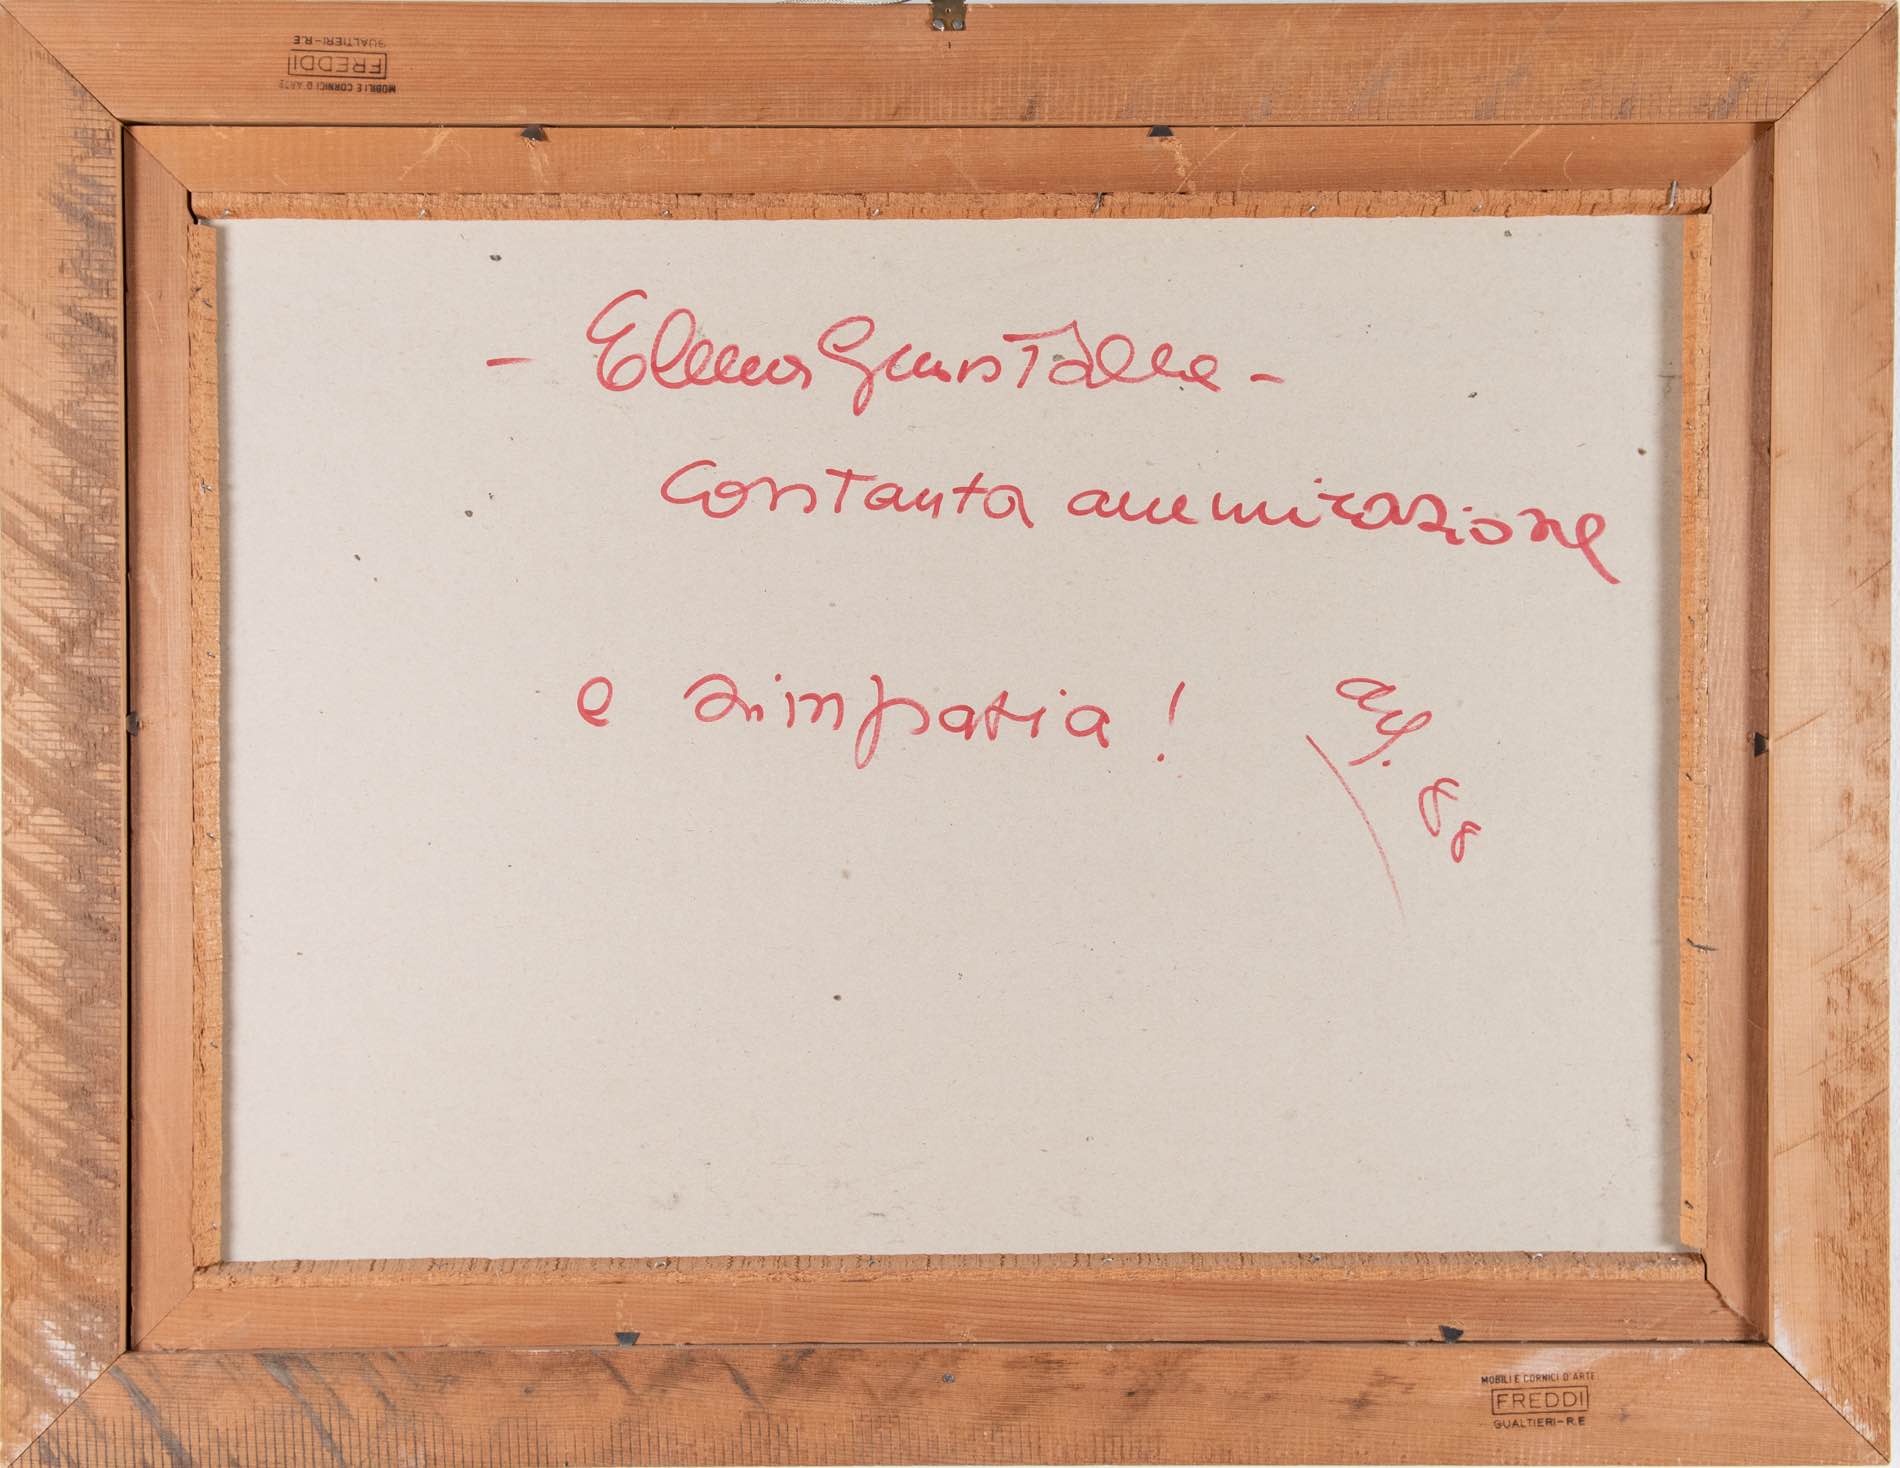 MOBILI E CORNICI D'ARTE
FREDDI
GUALTIERI-R.E
- Elena Guastalla -
Costanta ammirazione
e simpatia!
88
MOBILI E CORNICI D'ARTE
FREDDI
GUALTIERI-R.E